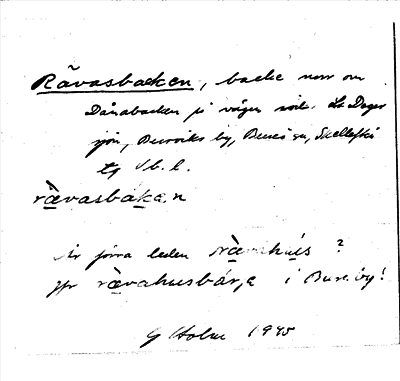 Rävasbacken, backe norr om
Dånabacken på vägen mot St. Dager
sjön, Bureviks by, Bureå sn, Skellefteå
tg Vb. l.
rävasbáken
Är förra leden rävahús?
jfr rävahusbár,e i Bureby!
G Holm 1945